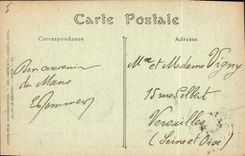 Carte Postale
Correspondance
Adresse
Bon souvenir
du Mans
Mr et Madame Vigny
15 rue Colbert
Versailles
(Seine et Oise)